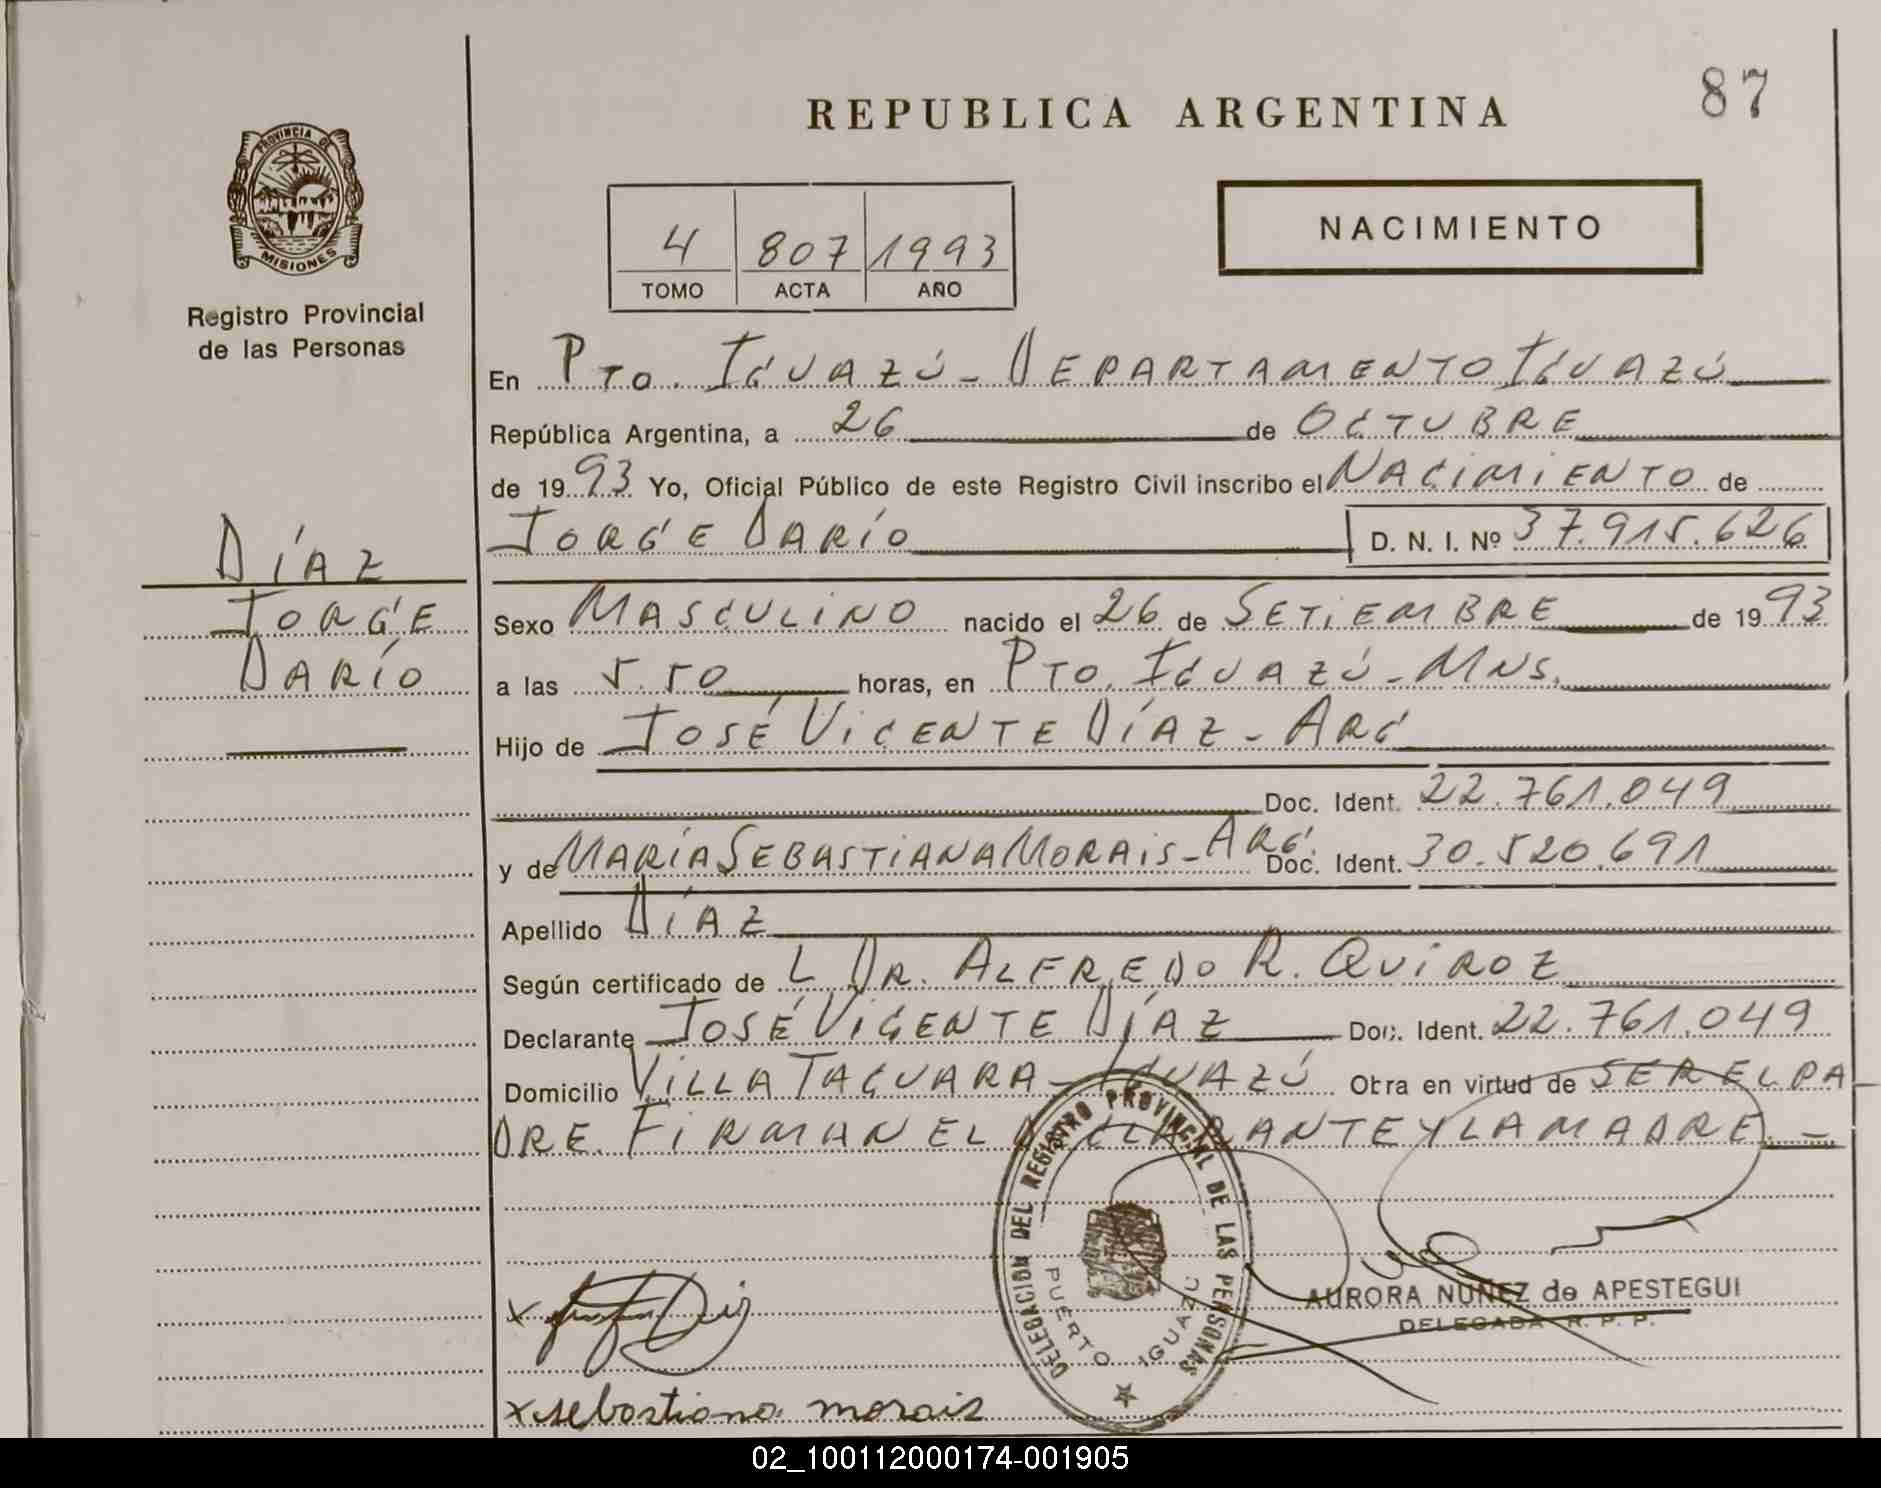 REPUBLICA ARGENTINA
87
PROVINCIA DE
MISIONES
Registro Provincial
de las Personas
4 807 1993
TOMO ACTA AÑO
NACIMIENTO
En PTO. IGUAZÚ - DEPARTAMENTO IGUAZÚ
República Argentina, a 26 de OCTUBRE
de 1993 Yo, Oficial Público de este Registro Civil inscribo el NACIMIENTO de
JORGE DARÍO D. N. I. Nº 37.915.626
DÍAZ
JORGE
DARÍO
Sexo MASCULINO nacido el 26 de SETIEMBRE de 1993
a las 5.50 horas, en PTO. IGUAZÚ - MNS.
Hijo de JOSÉ VICENTE DÍAZ - ARG
Doc. Ident. 22.761.049
y de MARÍA SEBASTIANA MORAIS - ARG. Doc. Ident. 30.520.691
Apellido DÍAZ
Según certificado de L DR. ALFREDO R. QUIROZ
Declarante JOSÉ VICENTE DÍAZ Doc. Ident. 22.761.049
Domicilio VILLA TACUARA - IGUAZÚ Obra en virtud de SER EL PA
DRE. FIRMAN EL DECLARANTE Y LA MADRE. -
DELEGACION DEL REGISTRO PROVINCIAL DE LAS PERSONAS
PUERTO IGUAZU
AURORA NUÑEZ de APESTEGUI
DELEGADA R. P. P.
x
x sebastiana morais
02_100112000174-001905